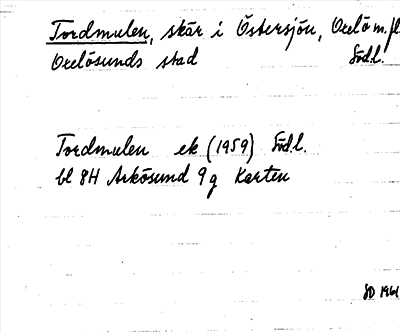 Tordmulen, skär i Östersjön, Oxelö m.fl.
Oxelösunds stad Södl.
Tordmulen ek (1959) Södl.
bl 8H Arkösund 9g Kartan